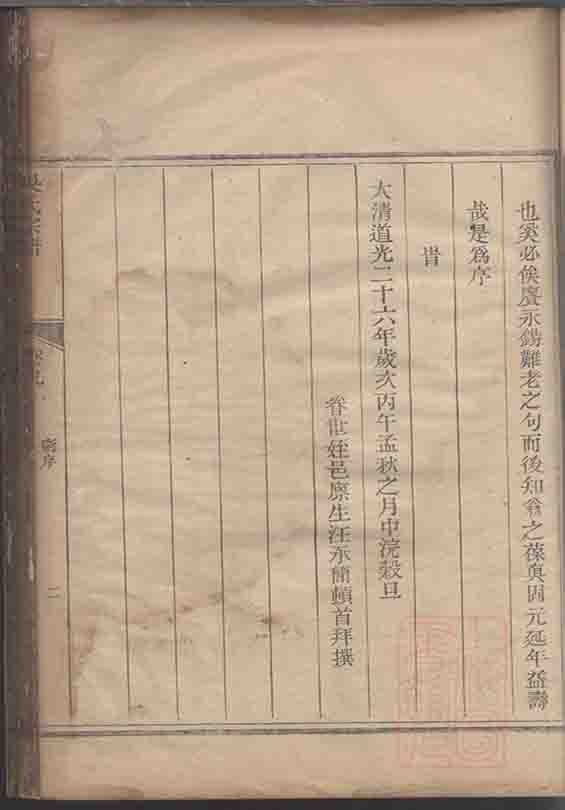 也奚必俟賡永錫難老之句而後知翁之葆真固元延年益壽
哉是爲序
旹
大清道光二十六年歲次丙午孟秋之月中浣穀旦
眷世姪邑廩生汪承簡頓首拜撰
壽序
二